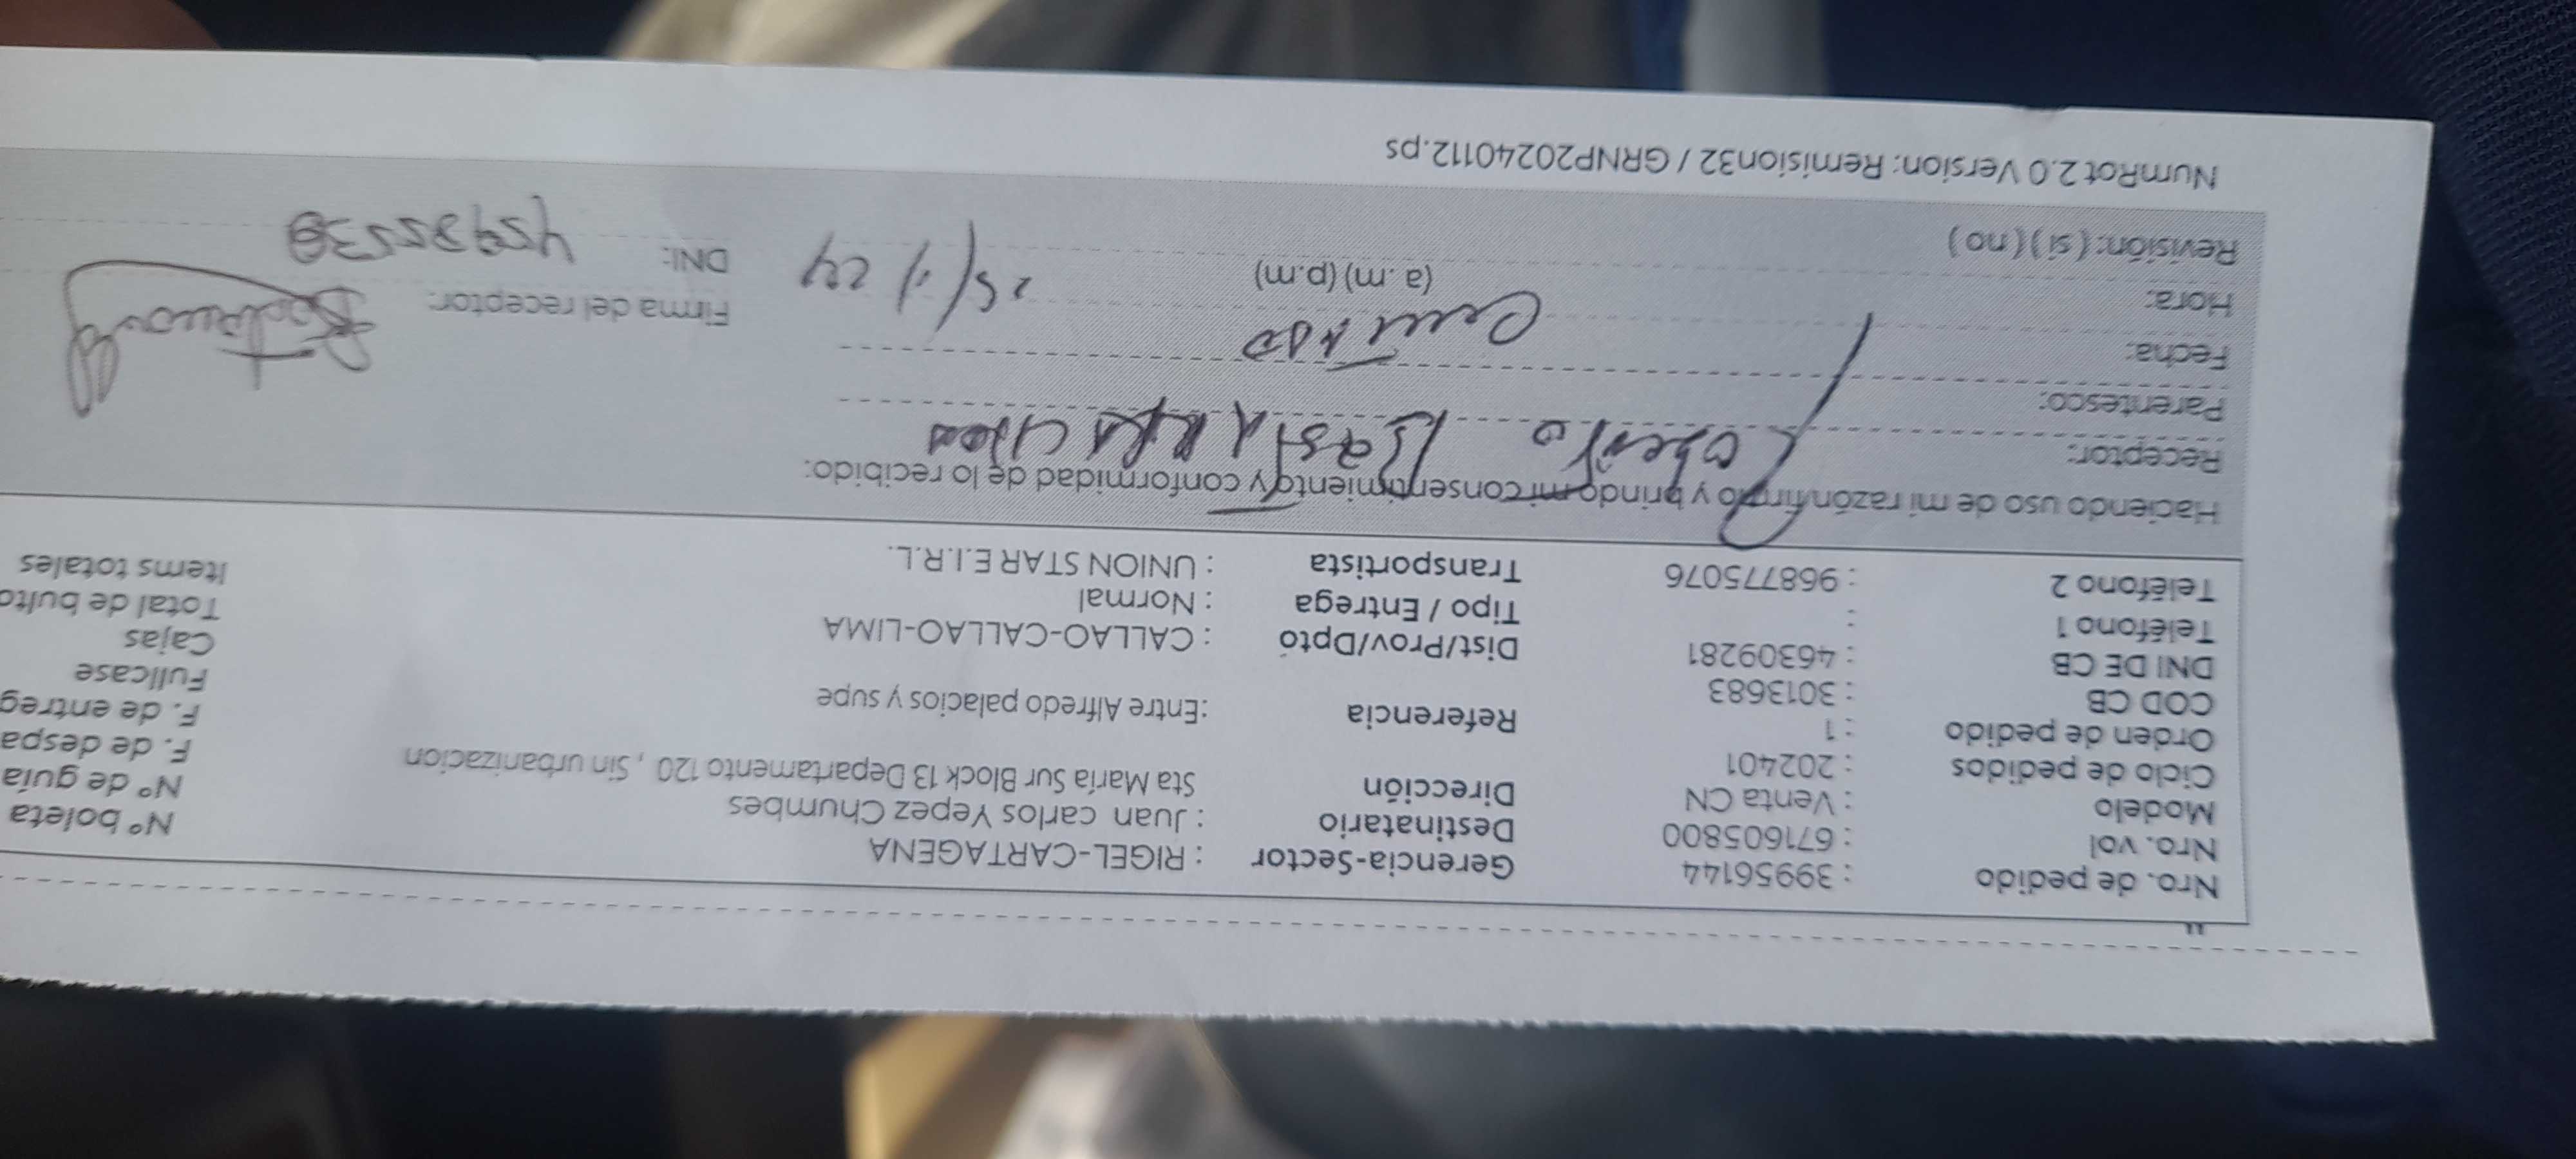 Nro. de pedido : 39956144 Gerencia-Sector : RIGEL-CARTAGENA
Nro. vol : 671605800 Destinatario : Juan carlos Yepez Chumbes Nº boleta
Modelo : Venta CN Dirección Sta María Sur Block 13 Departamento 120 , Sin urbanizacion Nº de guía
Ciclo de pedidos : 202401 F. de despa
Orden de pedido : 1 Referencia :Entre Alfredo palacios y supe F. de entreg
COD CB : 3013683 Fullcase
DNI DE CB : 46309281 Dist/Prov/Dpto : CALLAO-CALLAO-LIMA Cajas
Teléfono 1 : Tipo / Entrega : Normal Total de bulto
Teléfono 2 : 968775076 Transportista : UNION STAR E.I.R.L. Items totales
Haciendo uso de mi razón firmo y brindo mi consentimiento y conformidad de lo recibido:
Receptor: Roberto
Parentesco:
Fecha: Firma del receptor:
Hora: (a. m) (p.m) 25/1/24 DNI:
Revisión: ( si ) ( no )
NumRot 2.0 Version: Remision32 / GRNP20240112.ps